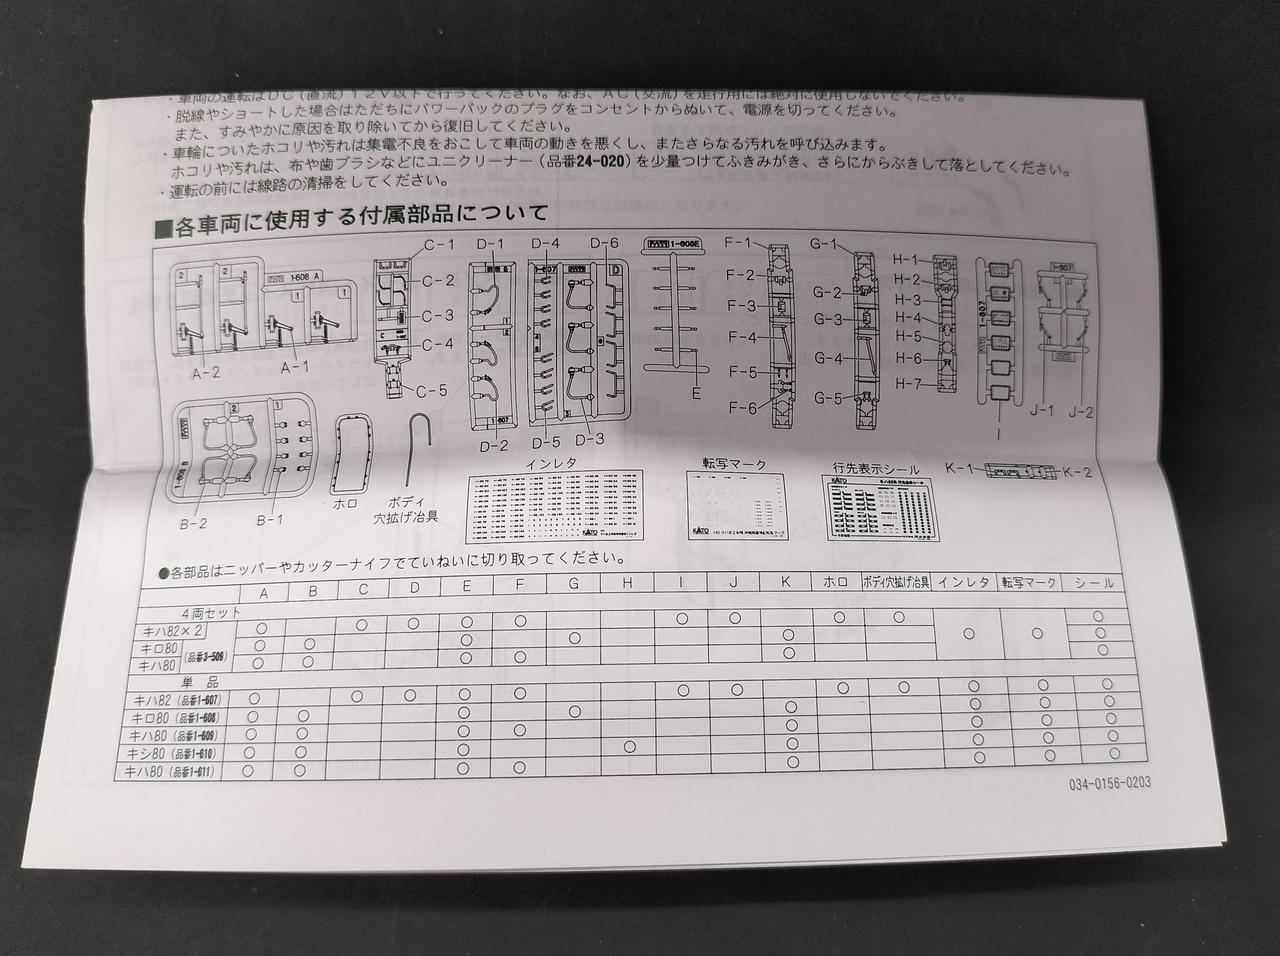 ・車両の運転はDC(直流)12V以下で行ってください。なお、AC(交流)を走行用には絶対に使用しないでください。
・脱線やショートした場合はただちにパワーパックのプラグをコンセントからぬいて、電源を切ってください。
また、すみやかに原因を取り除いてから復旧してください。
・車輪についたホコリや汚れは集電不良をおこして車両の動きを悪くし、またさらなる汚れを呼び込みます。
ホコリや汚れは、布や歯ブラシなどにユニクリーナー(品番24-020)を少量つけてふきみがき、さらにからぶきして落としてください。
・運転の前には線路の清掃をしてください。
■各車両に使用する付属部品について
2 2 1-608 A 1 1
A-2 A-1
C-1
C-2
C-3
C-4
C-5
D-1 D-4 D-6
1-607 D
1
2
1-607
D-2 D-5 D-3
1-608E
E
F-1
F-2
F-3
F-4
F-5
F-6
G-1
G-2
G-3
G-4
G-5
H-1
H-2
H-3
H-4
H-5
H-6
H-7
1-607
I
1-607
J-1 J-2
2 1
1-608 B
B-2 B-1
ホロ
ボディ
穴拡げ冶具
インレタ
KATO
転写マーク
KATO
行先表示シール
KATO
K-1 K-2
●各部品はニッパーやカッターナイフでていねいに切り取ってください。
A B C D E F G H I J K ホロ ボディ穴拡げ冶具 インレタ 転写マーク シール
4両セット
キハ82×2 ○ ○ ○ ○ ○ ○ ○ ○ ○ ○ ○ ○
キロ80 (品番3-509) ○ ○ ○ ○ ○ ○
キハ80 ○ ○ ○ ○ ○ ○
単 品
キハ82 (品番1-607) ○ ○ ○ ○ ○ ○ ○ ○ ○ ○ ○ ○
キロ80 (品番1-608) ○ ○ ○ ○ ○ ○ ○ ○
キハ80 (品番1-609) ○ ○ ○ ○ ○ ○ ○ ○
キシ80 (品番1-610) ○ ○ ○ ○ ○ ○ ○ ○
キハ80 (品番1-611) ○ ○ ○ ○ ○ ○ ○ ○
034-0156-0203